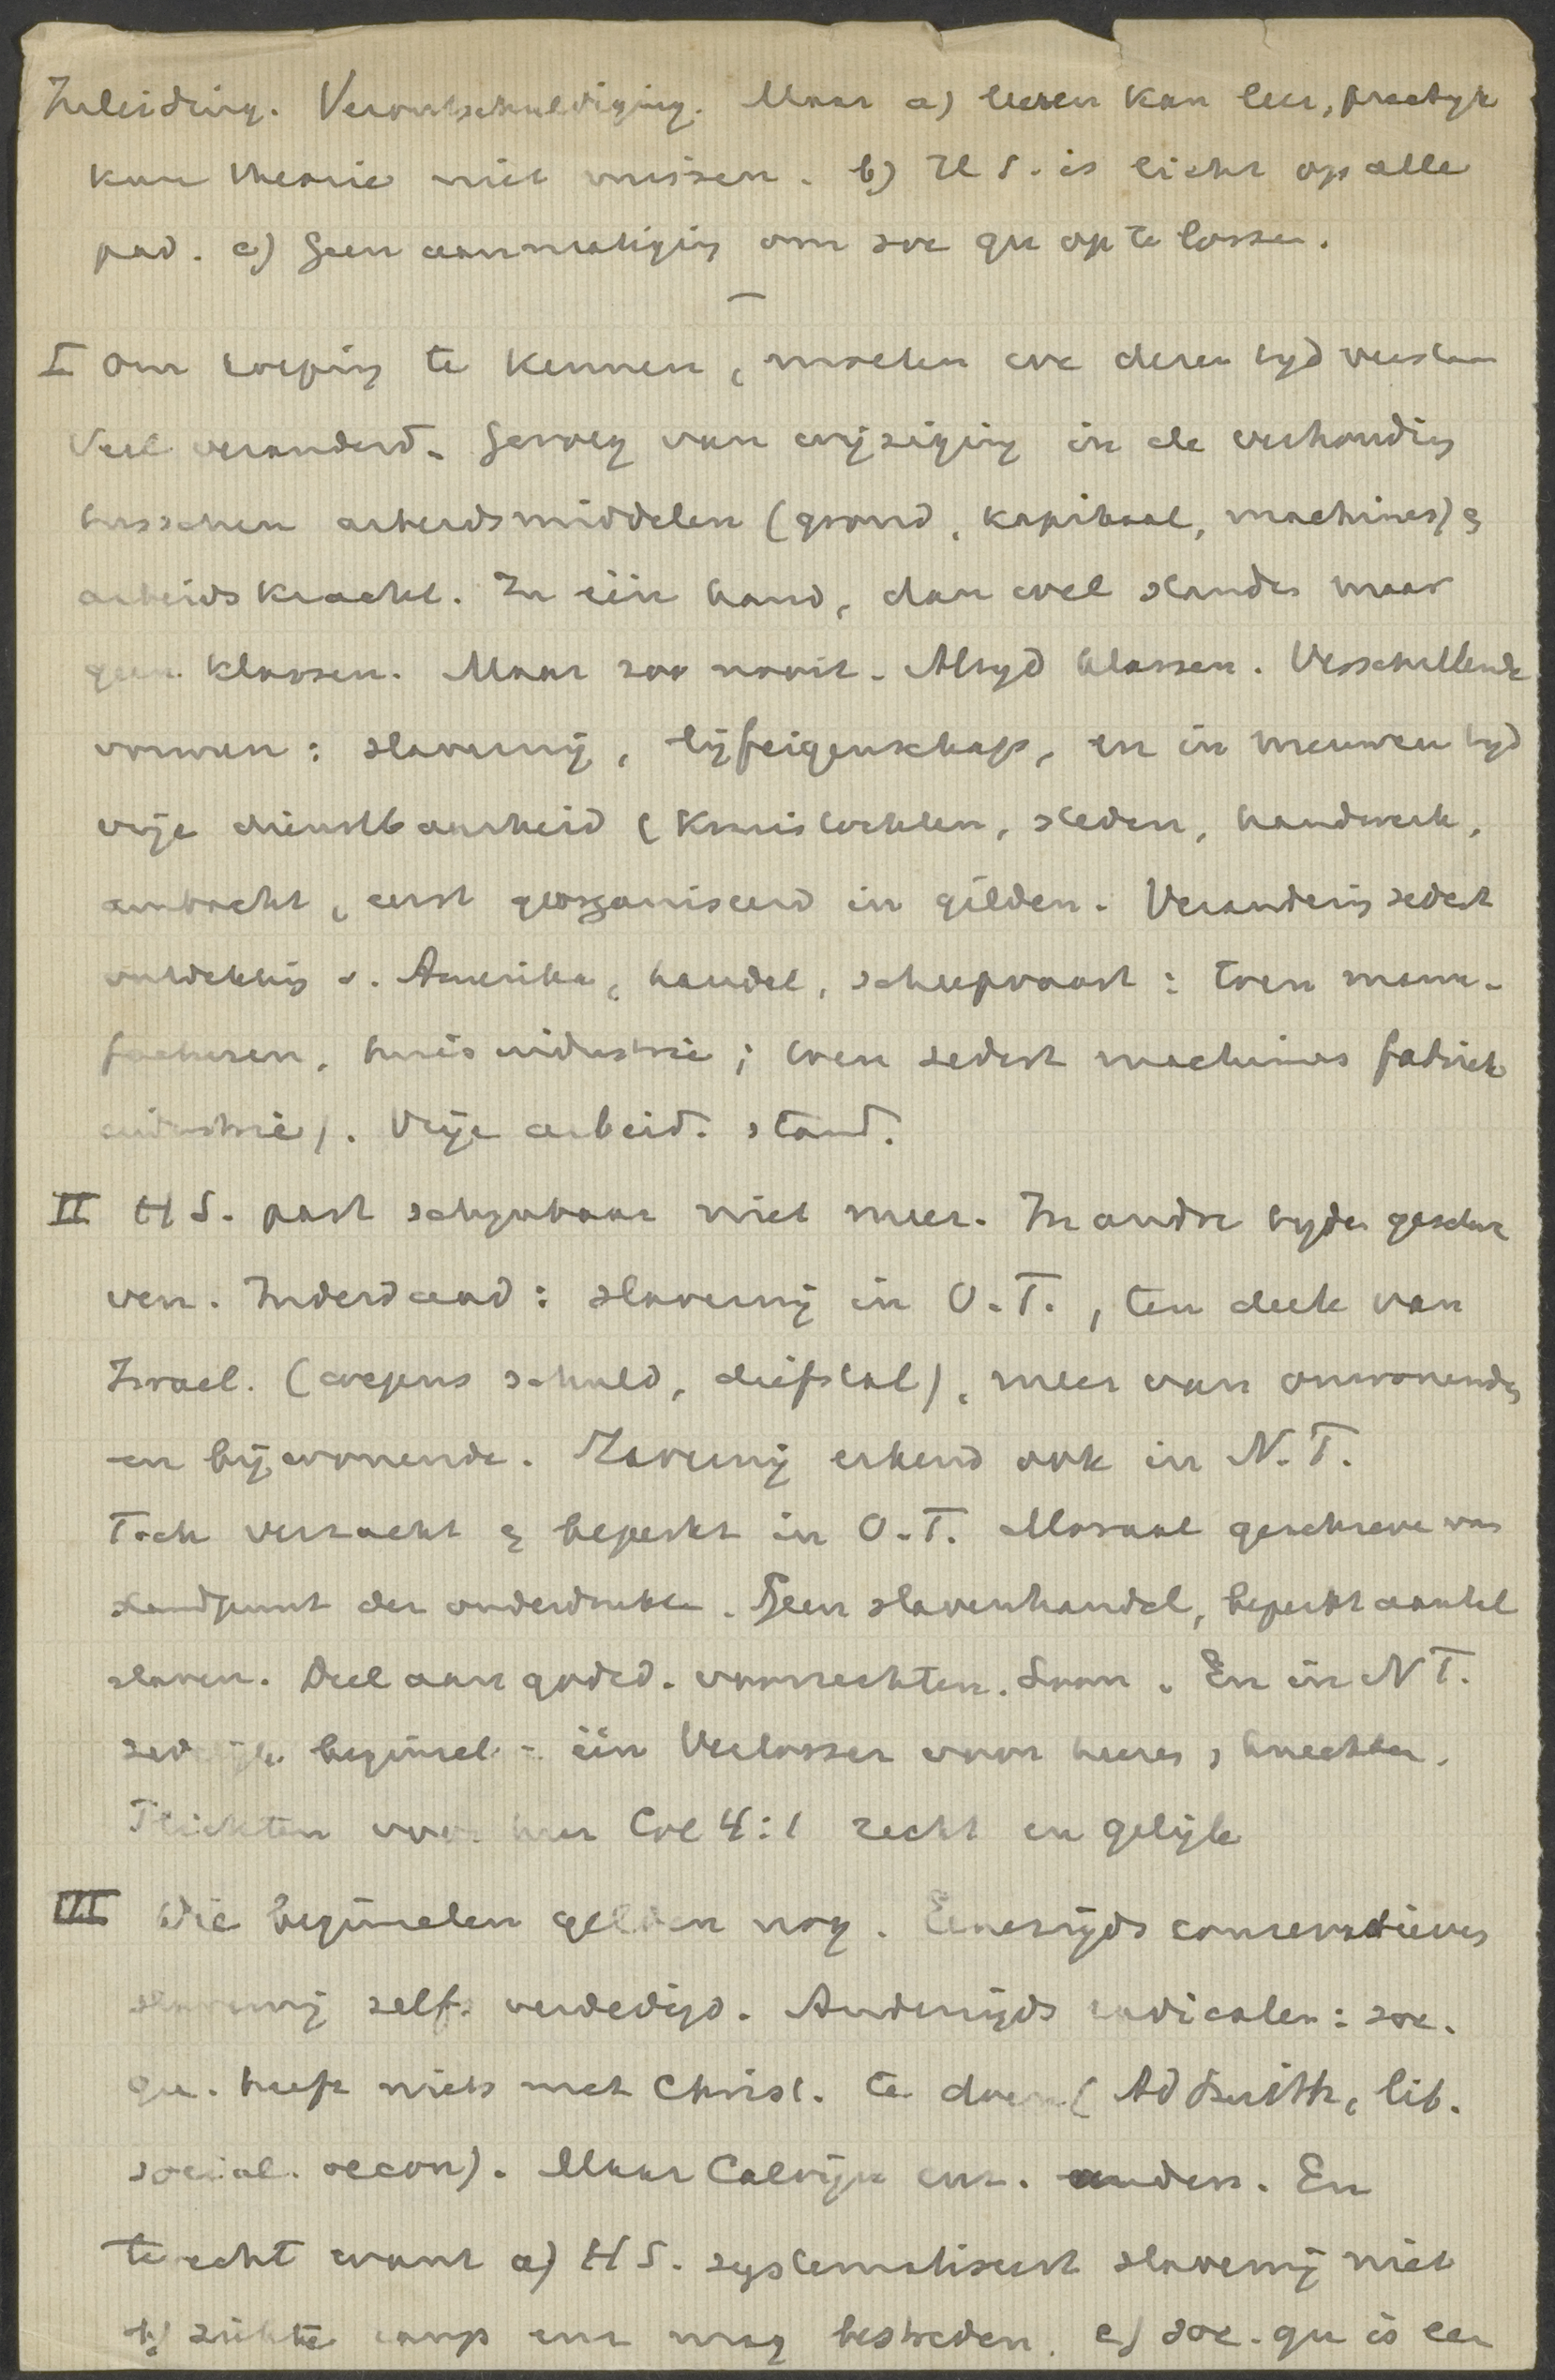 Inleiding. Verontschuldiging. Maar a) leven kan leer, practyk
kan theorie niet missen. b) H S. is licht op alle
pad. c) Geen aanmatiging om soc qu op te lossen.
I Om roeping te kennen, moeten we deren tyd verstaan
Veel veranderd. Gevolg van wijziging in de verhouding
tusschen arbeidsmiddelen (grond, kapitaal, machines) &
arbeidskracht. In één hand, dan wel standen maar
geen klassen. Maar zoo nooit. Altyd klassen. Verschillende
vormen: slavernij, lijfeigenschap, en in nieuwen tyd
vrije dienstbaarheid (Kruistochten, steden, handwerk,
ambacht, eerst georganiseerd in gilden. Verandering sedert
ontdekking v. Amerika, handel, scheepvaart: toen manu-
facturen, huisindustrie; toen sedert machines fabriek
industrie). Vrije arbeid. stand.
II H S. past schynbaar niet meer. In andre tyden geschre
ven. Inderdaad: slavernij in O.T., ten deele van
Israel. (wegens schuld, diefstal), meer van omwonenden
en bijwonende. Slavernij erkend ook in N.T.
Toch verzacht & beperkt in O.T. Moraal geschreven van
standpunt der onderdrukten. Geen slavenhandel, beperkt aantal
slaven. Deel aan godsd. voorrechten. Loon. En in N T.
zedelijk beginsel - één Verlosser voor heeren & knechten.
Plichten voor heer Col 4:1 recht en gelijk
III Die beginselen gelden nog. Eenerzijds conservatieven
slavernij zelfs verdedigd. Anderzijds radicalen: soc.
qu. heeft niets met Christ. te doen (Ad Smith, lib.
social. oecon). Maar Calvijn enz. anders. En
terecht want a) H S. systematiseert slavernij niet
b) ziekte ramp enz mag bestreden. c) soc. qu is een